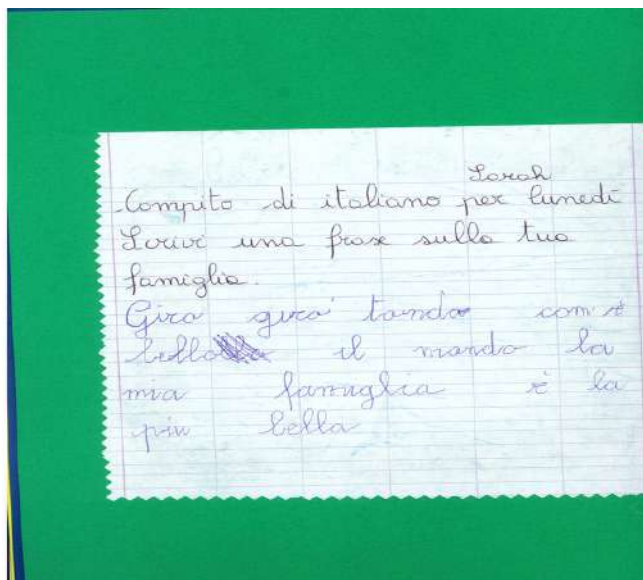 Sarah
Compito di italiano per lunedì
Scrivi una frase sulla tua
famiglia.
Gira gira tondo com'è
bello il mondo la
mia famiglia è la
più bella